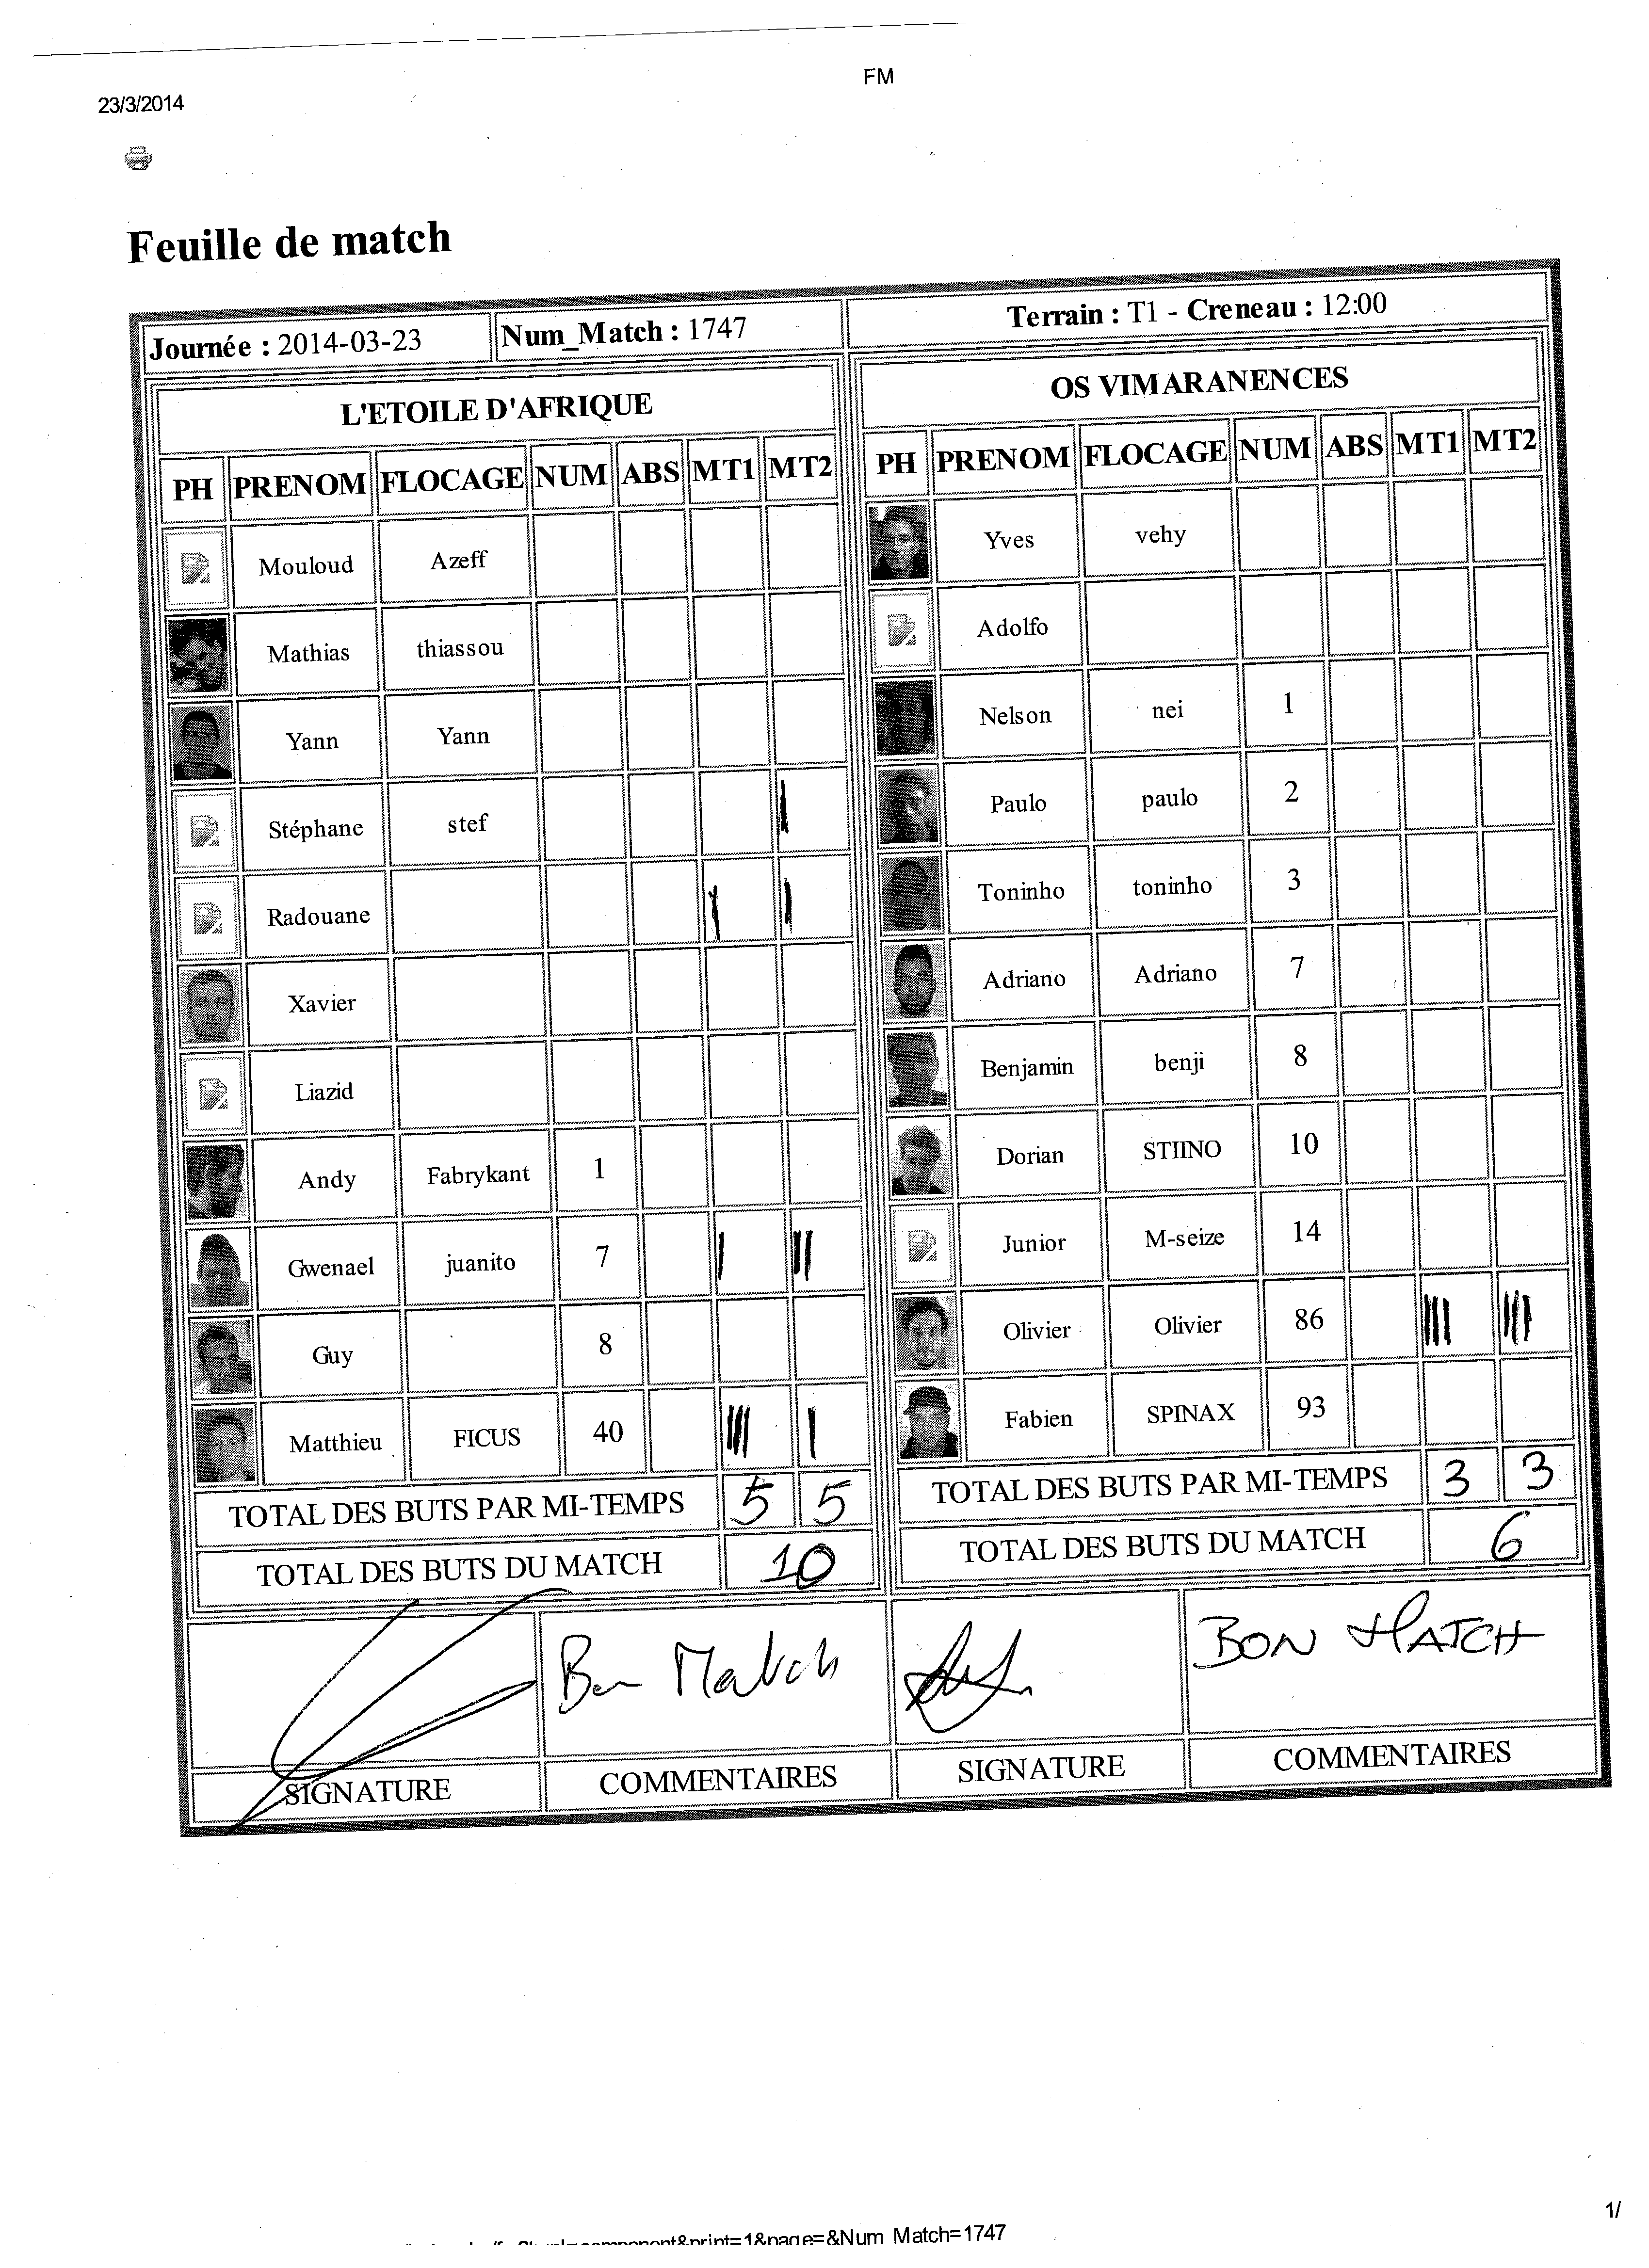 FM
23/3/2014
Feuille de match
Journée : 2014-03-23 Num_Match : 1747 Terrain : T1 - Creneau : 12:00
L'ETOILE D'AFRIQUE
PH PRENOM FLOCAGE NUM ABS MT1 MT2
Mouloud Azeff
Mathias thiassou
Yann Yann
Stéphane stef |
Radouane | |
Xavier
Liazid
Andy Fabrykant 1
Gwenael juanito 7 | ||
Guy 8
Matthieu FICUS 40 ||| |
TOTAL DES BUTS PAR MI-TEMPS 5 5
TOTAL DES BUTS DU MATCH 10
OS VIMARANENCES
PH PRENOM FLOCAGE NUM ABS MT1 MT2
Yves vehy
Adolfo
Nelson nei 1
Paulo paulo 2
Toninho toninho 3
Adriano Adriano 7
Benjamin benji 8
Dorian STIINO 10
Junior M-seize 14
Olivier Olivier 86 ||| |||
Fabien SPINAX 93
TOTAL DES BUTS PAR MI-TEMPS 3 3
TOTAL DES BUTS DU MATCH 6
Bon Match
BON MATCH
SIGNATURE COMMENTAIRES SIGNATURE COMMENTAIRES
1/
&print=1&page=&Num_Match=1747